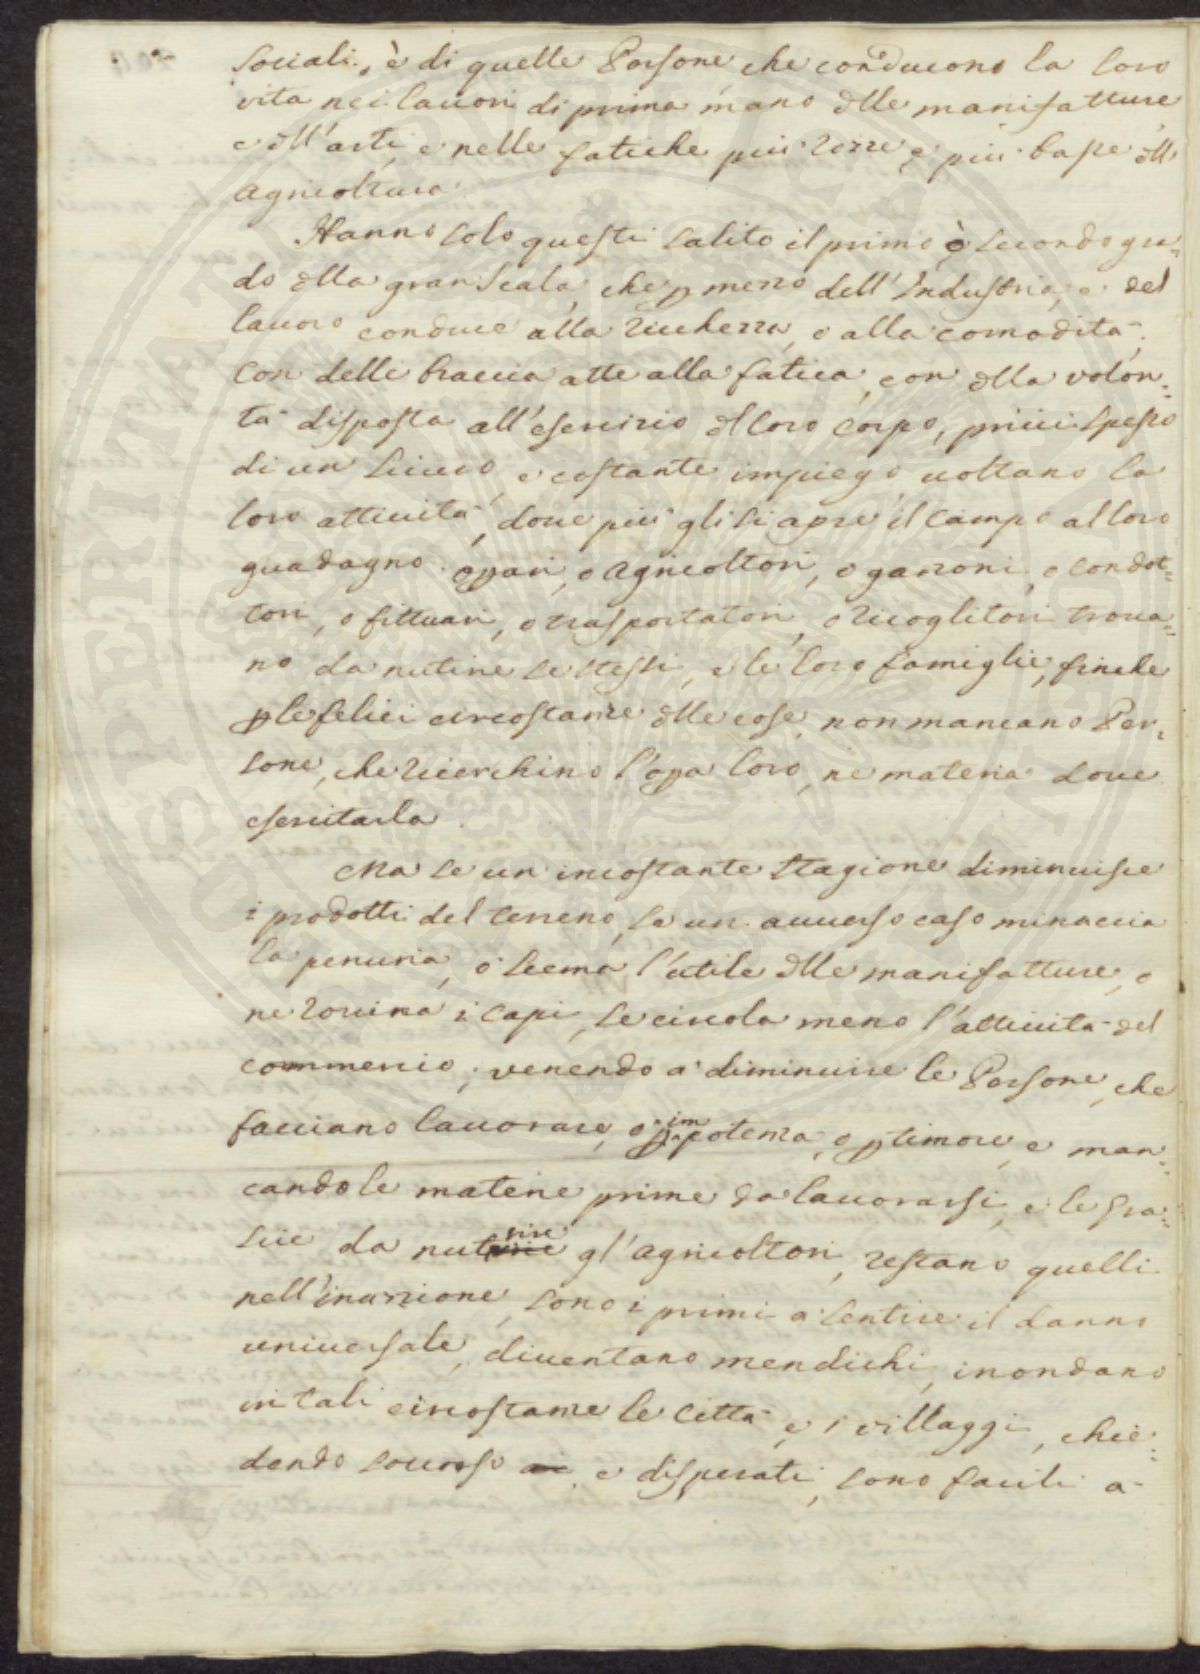 sociali, è di quelle Persone che conducono la loro
vita nei lavori di prima mano dlle manifatture
e dll'arti, e nelle fatiche più rozze e più basse dll
agricoltura.
Hanno solo questi salito il primo ò secondo gra=
do dlla gran Scala, che p mezzo dell'Industria, e del
lavoro conduce alla ricchezza, o alla comodità,
con delle braccia atte alla fatica, con dlla volon=
tà disposta all'esercizio dl loro corpo, privi spesso
di un sicuro, e costante impiego voltano la
loro attività, dove più gli si apre il campo al loro
guadagno. opari, o agricoltori, o garzoni, o condot=
tori, o fittuari, o trasportatori, o ricoglitori trova=
no da nutrire se stessi, e le loro famiglie, finche
p le felici circostanze dlle cose, non mancano Per=
sone, che ricerchino l'opa loro, ne materia dove
esercitarla.
Ma se un incostante stagione diminuisce
i prodotti del terreno, se un avverso caso minaccia
la penuria, o scema l'utile dlle manifatture, o
ne rovina i capi, se circola meno l'attività del
commercio, venendo a diminuire le Persone, che
facciano lavorare, o p impotenza, o p timore, e man=
cando le materie prime da lavorarsi, e le gra=
scie da nutrire gl'agricoltori, restano quelli
nell'inazzione, sono i primi a sentire il danno
universale, diventano mendichi, inondano
in tali circostanze le Città e i villaggi, chie=
dendo soccorso e disperati, sono facili a